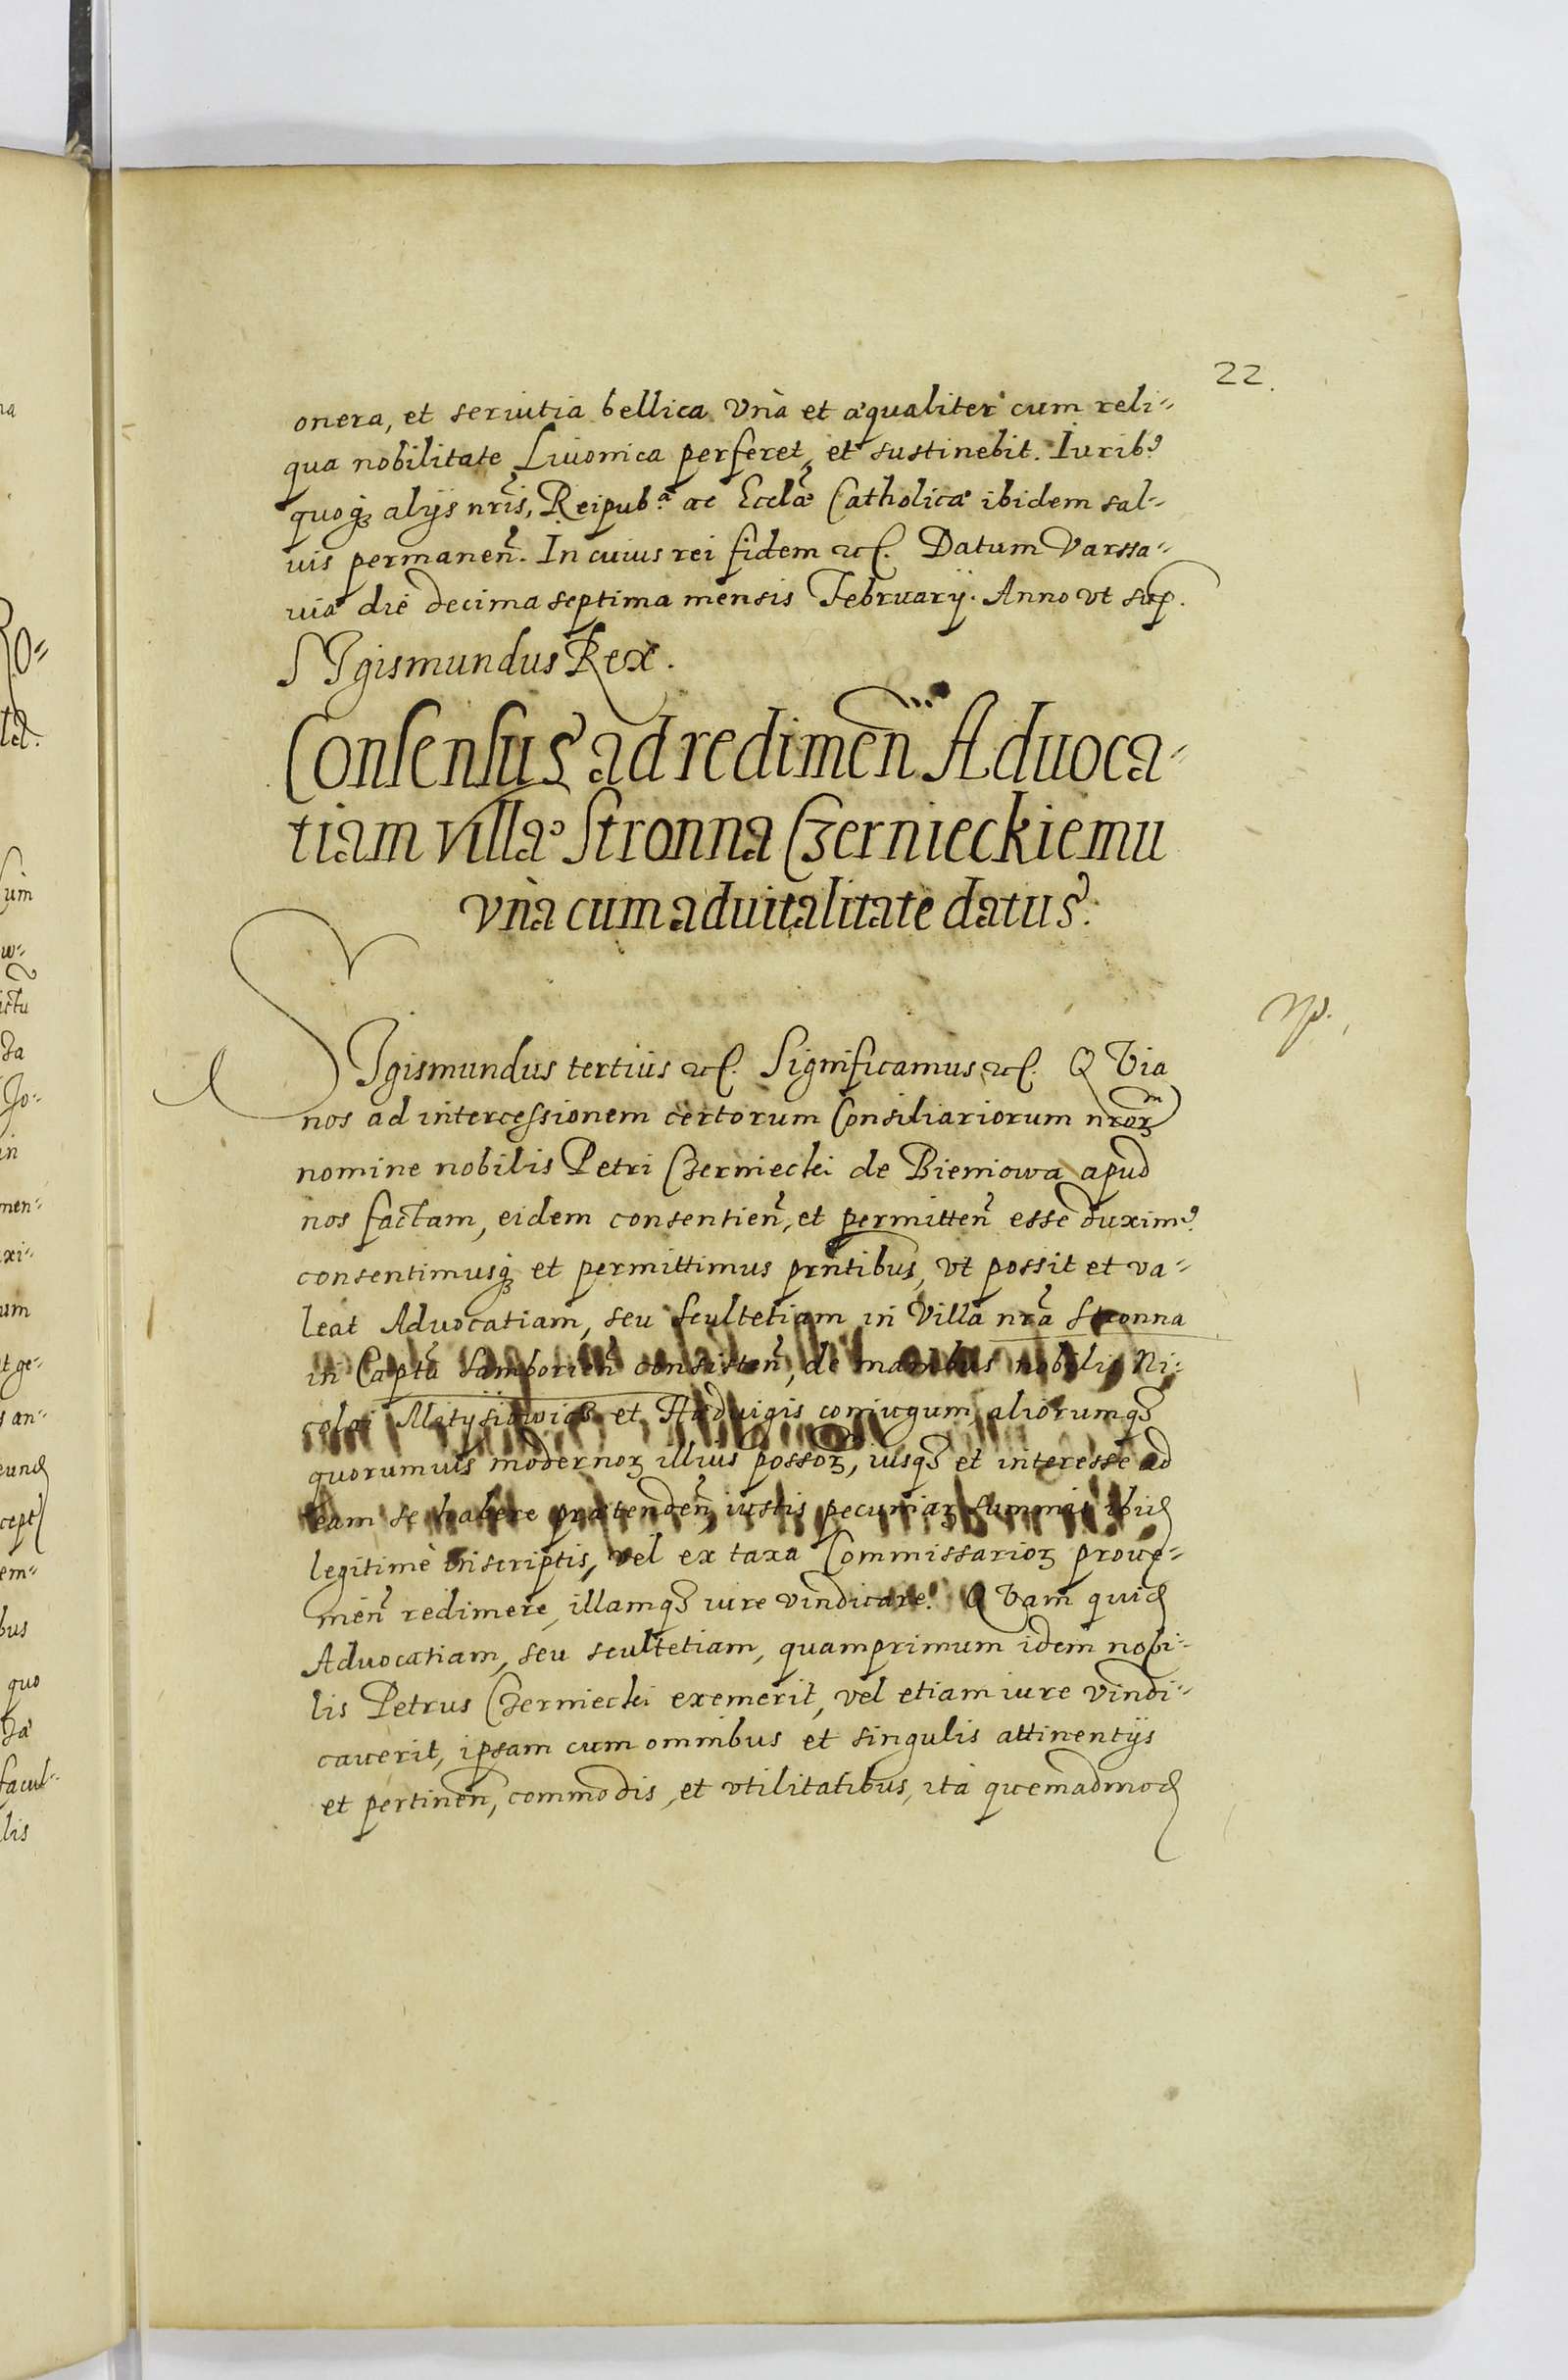 22.
onera, et seruitia bellica Vnà et æqualiter cum reli-
qua nobilitate Liuonica perferet, et sustinebit. Iurib9
quoq3 alijs nris, Reipub.a ac Ecclæ Catholicæ ibidem sal-
uis permanen. In cuius rei fidem etc. Datum Varssa-
uiæ die decima septima mensis February. Anno vt sup.
SIgismundus Rex.
Consensus ad redimen Aduoca-
tiam villæ Stronna Czernieckiemu
vnà cum aduitalitate datus.
SIgismundus tertius etc. Significamus etc. QVia
nos ad intercessionem certorum Consiliariorum nror
nomine nobilis Petri Czerniecki de Bieniowa apud
nos factam, eidem consentien, et permitten esse duxim9.
consentimusq3 et permittimus prntibus, vt possit et va-
leat Aduocatiam, seu scultetiam in Villa nra Stronna
in Captu Samborien consisten, de manibus nobilis Ni-
colai Matysiowicz et Haduigis coniugum, aliorumq3
quorumuis modernor illius possor, iusq3 et interesse ad
eam se habere prætenden, iustis pecuniar summis ibid
legitimè inscriptis, vel ex taxa Commissarior proue-
nien redimere, illamq3 iure vindicare. QVam quid
Aduocatiam, seu scultetiam, quamprimum idem nobi-
lis Petrus Czerniecki exemerit, vel etiam iure vindi-
cauerit, ipsam cum omnibus et singulis attinentijs
et pertinen, commodis, et vtilitatibus, ita quemadmod